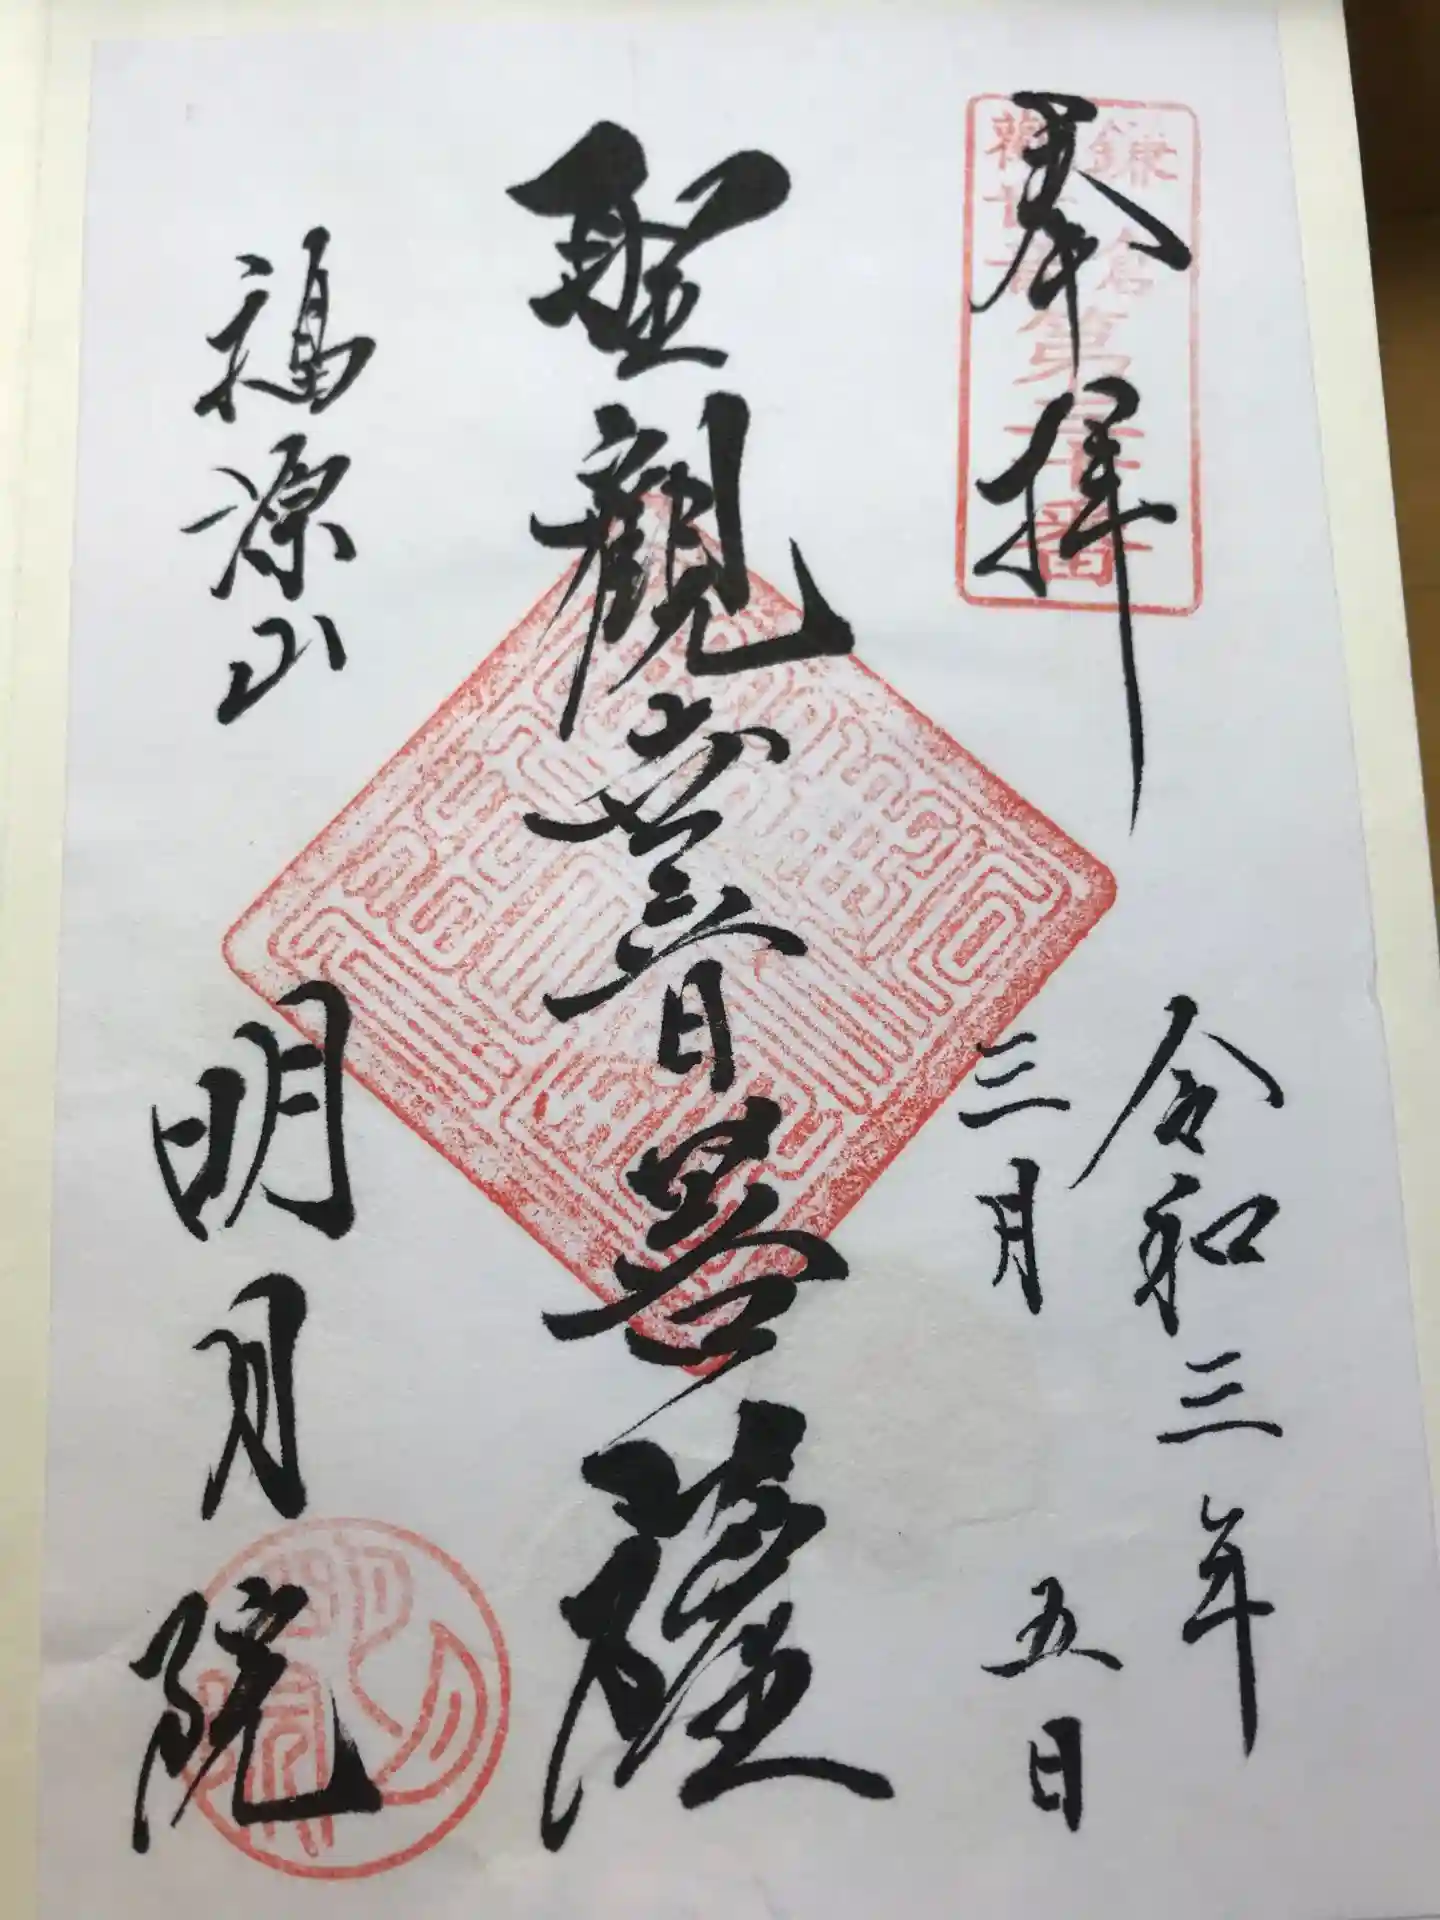 奉拝
鎌倉
観世音
第三十番
令和三年
三月五日
聖観世音菩薩
福源山
明月院